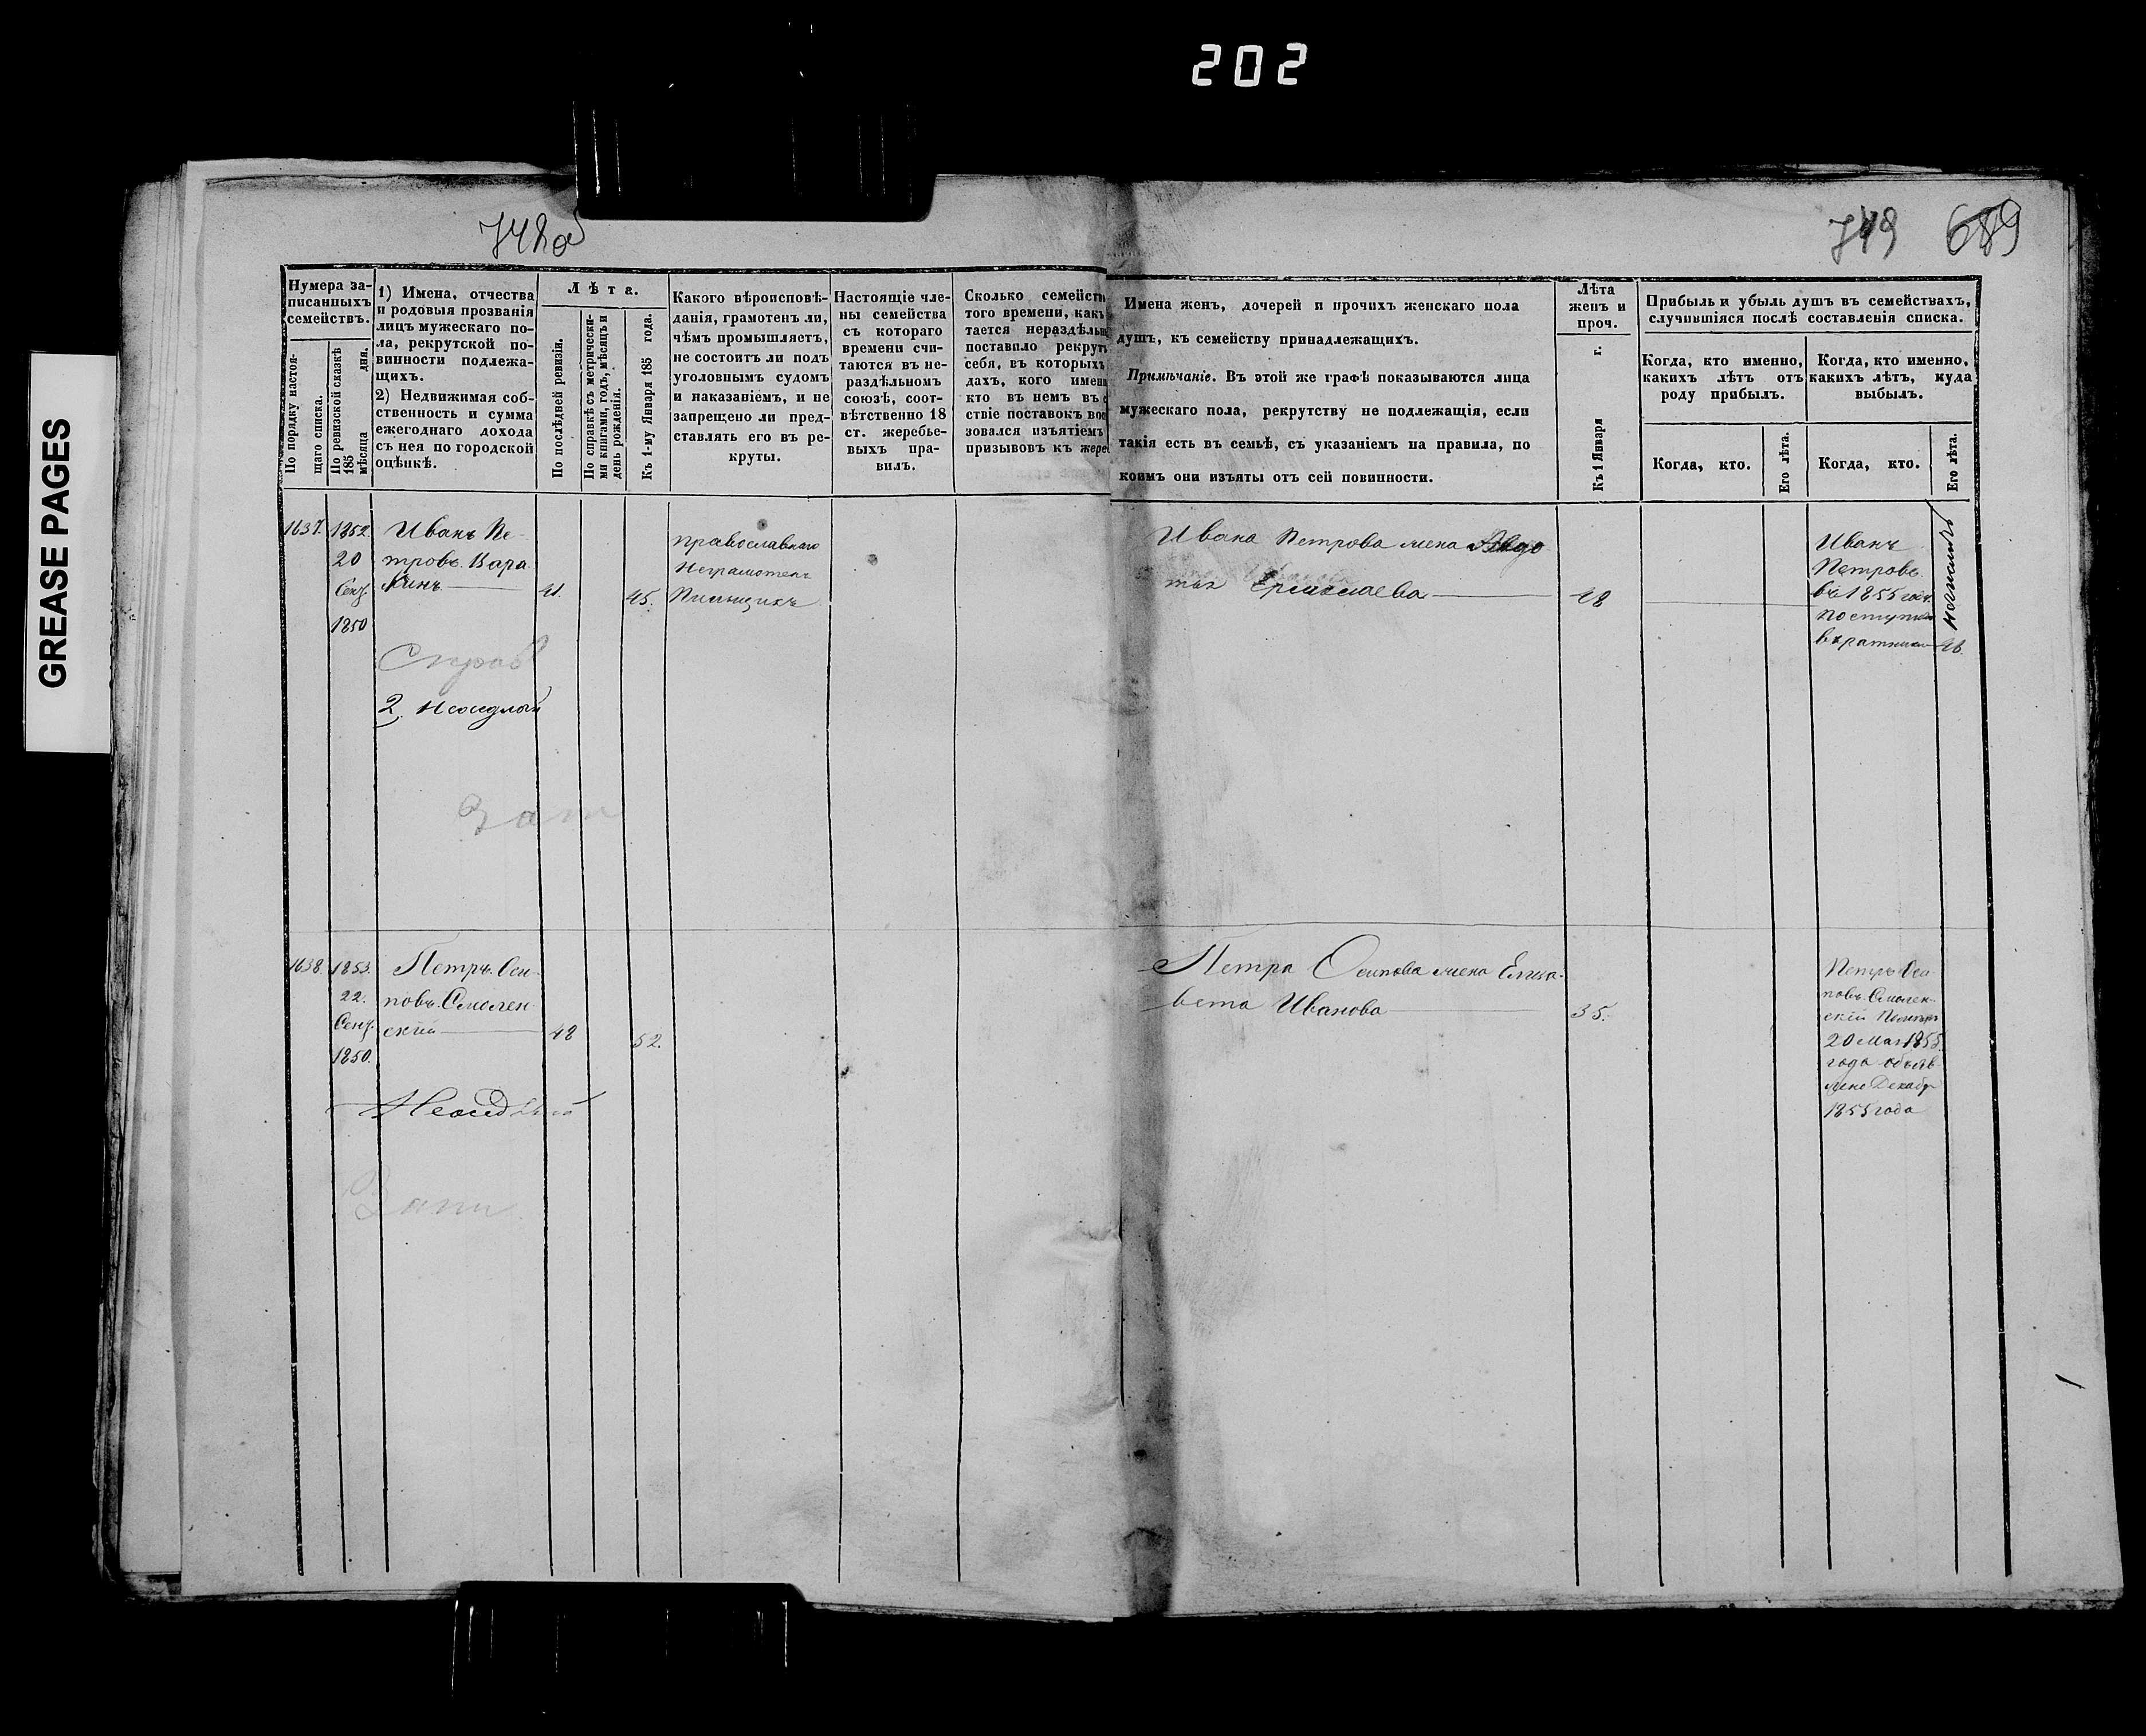 202
GREASE PAGES
748об
749 689
Нумера за-
писанныхъ
семействъ.
По порядку настоя-
щаго списка.
По ревизской сказкѣ
185 мѣсяца дня.
1) Имена, отчества
и родовыя прозванія
лицъ мужескаго по-
ла, рекрутской по-
винности подлежа-
щихъ.
2) Недвижимая соб-
ственность и сумма
ежегоднаго дохода
съ нея по городской
оцѣнкѣ.
Лѣта.
По послѣдней ревизіи.
По справкѣ съ метрически-
ми книгами, годъ, мѣсяцъ и
день рожденія.
Къ 1-му Января 185 года.
Какого вѣроисповѣ-
данія, грамотенъ ли,
чѣмъ промышляетъ,
не состоитъ ли подъ
уголовнымъ судомъ
и наказаніемъ, и не
запрещено ли пред-
ставлять его въ ре-
круты.
Настоящіе чле-
ны семейства
съ котораго
времени счи-
таются въ не-
раздѣльномъ
союзѣ, соот-
вѣтственно 18
ст. жеребье-
выхъ пра-
вилъ.
Сколько семейств
того времени, какъ
тается нераздѣльн
поставило рекрут
себя, въ которыхъ
дахъ, кого имен
кто въ немъ въ с
ствіе поставокъ вос
зовался изъятіемъ
призывовъ къ жере
Имена женъ, дочерей и прочихъ женскаго пола
душъ, къ семейству принадлежащихъ.
Примѣчаніе. Въ этой же графѣ показываются лица
мужескаго пола, рекрутству не подлежащія, если
такія есть въ семьѣ, съ указаніемъ на правила, по
коимъ они изъяты отъ сей повинности.
Лѣта
женъ и
проч.
Къ 1 Января г.
Прибыль и убыль душъ въ семействахъ,
случившіяся послѣ составленія списка.
Когда, кто именно,
какихъ лѣтъ отъ
роду прибылъ.
Когда, кто именно,
какихъ лѣтъ, куда
выбылъ.
Когда, кто.
Его лѣта.
Когда, кто.
Его лѣта.
1637. 1852. Иванъ Пе-
20 тровъ Кара
Сент. кинъ 41. 45.
1850
православнаго
Неграмотенъ
Пильщикъ
Справ
2. Неоседлый
Ивана Петрова жена Авдо
тья Ермолаева 48
Иванъ
Петровъ
въ 1855 год.
поступил
въ ратники 46.
1638. 1853. Петръ Оси-
22. повъ Смолен
Сент. скій 48 52.
1850.
Неоседлый
Петра Осипова жена Елиза-
вета Иванова 35.
Петръ Оси
повъ Смолен-
скій
20 Мая 1855
года объяв
лено Декабр
1855 года